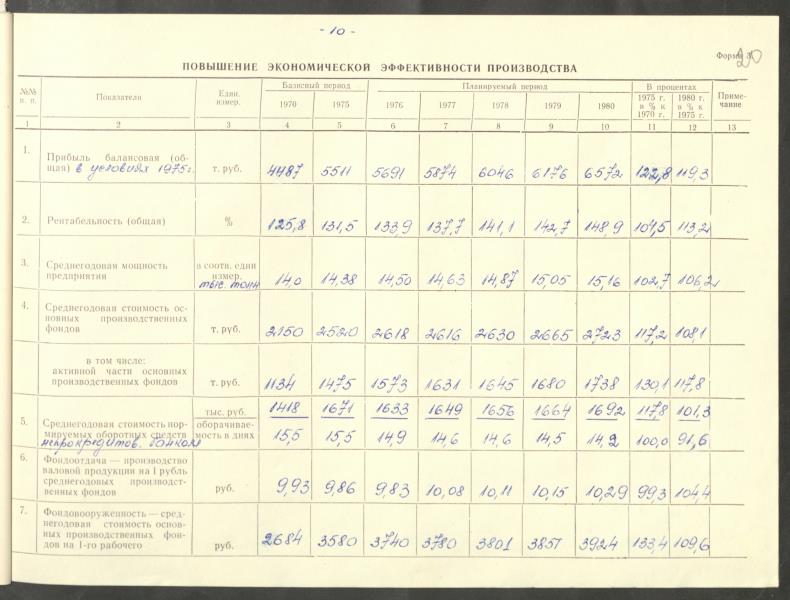 - 10 -
Форма 3
20
ПОВЫШЕНИЕ ЭКОНОМИЧЕСКОЙ ЭФФЕКТИВНОСТИ ПРОИЗВОДСТВА
№№ п. п. Показатели Един. измер. Базисный период Планируемый период В процентах Приме-
чание
1970 1975 1976 1977 1978 1979 1980 1975 г. в % к 1970 г. 1980 г. в % к 1975 г.
1 2 3 4 5 6 7 8 9 10 11 12 13
1. Прибыль балансовая (об-
щая) в условиях 1975 г. т. руб. 4487 5511 5691 5874 6046 6176 6572 122,8 119,3
2. Рентабельность (общая) % 125,8 131,5 133,9 137,7 141,1 142,7 148,9 104,5 113,2
3. Среднегодовая мощность
предприятия
в соотв. един измер.
тыс. тонн 14,0 14,38 14,50 14,63 14,87 15,05 15,16 102,7 106,2
4. Среднегодовая стоимость ос-
новных производственных
фондов т. руб. 2150 2520 2618 2616 2630 2665 2723 117,2 108,1
в том числе:
активной части основных
производственных фондов т. руб. 1134 1475 1573 1631 1645 1680 1738 130,1 117,8
тыс. руб. 1418 1671 1633 1649 1656 1664 1692 117,8 101,3
5. Среднегодовая стоимость нор-
мируемых оборотных средств
непрокредитов. банком
оборачивае-
мость в днях 15,5 15,5 14,9 14,6 14,6 14,5 14,2 100,0 91,6
6. Фондоотдача — производство
валовой продукции на 1 рубль
среднегодовых производст-
венных фондов руб. 9,93 9,86 9,83 10,08 10,11 10,15 10,29 99,3 104,4
7. Фондовооруженность — сред-
негодовая стоимость основ-
ных производственных фон-
дов на 1-го рабочего руб. 2684 3580 3740 3780 3801 3851 3924 133,4 109,6